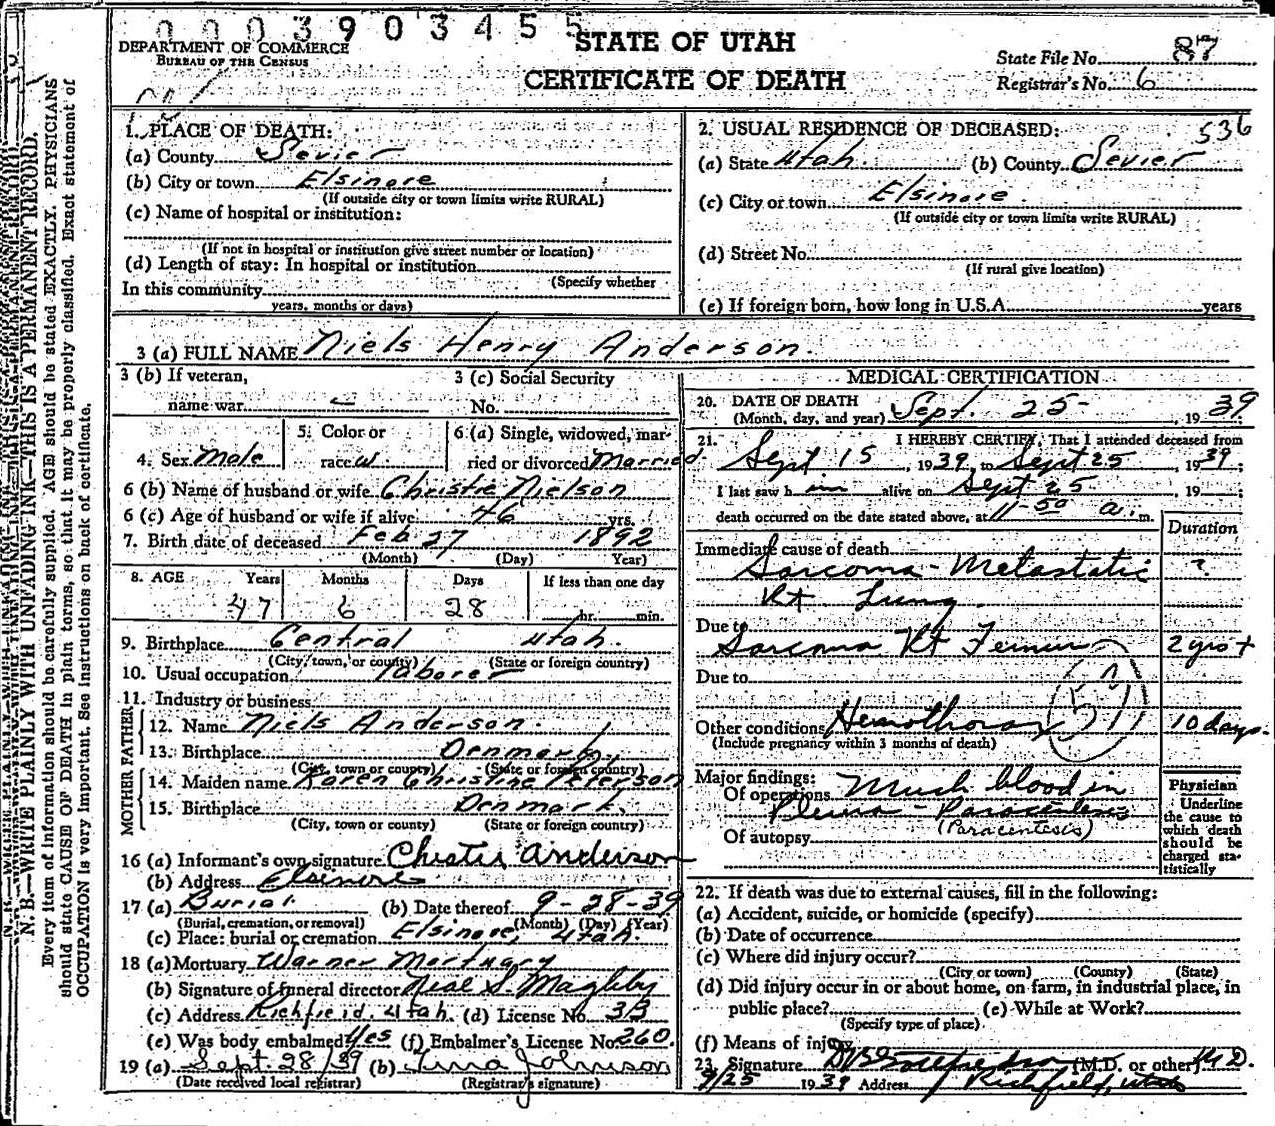 0003903455
DEPARTMENT OF COMMERCE
BUREAU OF THE CENSUS
STATE OF UTAH
CERTIFICATE OF DEATH
State File No. 87
Registrar's No. 6
536
N. B.—WRITE PLAINLY WITH UNFADING INK—THIS IS A PERMANENT RECORD.
Every item of information should be carefully supplied. AGE should be stated EXACTLY. PHYSICIANS
should state CAUSE OF DEATH in plain terms, so that it may be properly classified. Exact statement of
OCCUPATION is very important. See instructions on back of certificate.
1. PLACE OF DEATH:
(a) County Sevier
(b) City or town Elsinore
(If outside city or town limits write RURAL)
(c) Name of hospital or institution:
(If not in hospital or institution give street number or location)
(d) Length of stay: In hospital or institution
(Specify whether
In this community
years, months or days)
2. USUAL RESIDENCE OF DECEASED:
(a) State Utah (b) County Sevier
(c) City or town Elsinore
(If outside city or town limits write RURAL)
(d) Street No.
(If rural give location)
(e) If foreign born, how long in U.S.A. years
3 (a) FULL NAME Niels Henry Anderson.
3 (b) If veteran,
name war
3 (c) Social Security
No.
4. Sex Male
5. Color or
race W
6 (a) Single, widowed, mar-
ried or divorced Married
6 (b) Name of husband or wife Christie Nielson
6 (c) Age of husband or wife if alive 46 yrs.
7. Birth date of deceased Feb 27 1892
(Month) (Day) Year)
8. AGE Years Months Days If less than one day
47 6 28 hr. min.
9. Birthplace Central Utah.
(City, town, or county) (State or foreign country)
10. Usual occupation laborer
11. Industry or business
FATHER
12. Name Niels Anderson.
13. Birthplace Denmark
(City, town or county) (State or foreign country)
MOTHER
14. Maiden name Karen Christine Peterson
15. Birthplace Denmark.
(City, town or county) (State or foreign country)
16 (a) Informant's own signature Christie Anderson
(b) Address Elsinore
17 (a) Burial (b) Date thereof 9-28-39
(Burial, cremation, or removal) (Month) (Day) (Year)
(c) Place: burial or cremation Elsinore, Utah.
18 (a) Mortuary Warner Mortuary
(b) Signature of funeral director Neal S. Magleby
(c) Address Richfield, Utah. (d) License No. 313
(e) Was body embalmed Yes (f) Embalmer's License No. 260.
19 (a) Sept. 28/39 (b) Johnson
(Date received local registrar) (Registrar's signature)
MEDICAL CERTIFICATION
20. DATE OF DEATH
(Month, day, and year) Sept. 25- , 1939
21. I HEREBY CERTIFY, That I attended deceased from
Sept. 15 , 1939, to Sept 25 , 1939;
I last saw him alive on Sept 25 19 ;
death occurred on the date stated above, at 11-50 a. m.
Duration
Immediate cause of death
Sarcoma - Metastatic ?
Rt Lung.
Due to
Sarcoma Rt Femur 2 yrs +
Due to
Other conditions Hemothorax 10 days.
(Include pregnancy within 3 months of death)
Major findings:
Of operations Much blood in
Pleura - Paracentesis
(Paracentesis)
Of autopsy
Physician
Underline
the cause to
which death
should be
charged sta-
tistically
22. If death was due to external causes, fill in the following:
(a) Accident, suicide, or homicide (specify)
(b) Date of occurrence
(c) Where did injury occur?
(City or town) (County) (State)
(d) Did injury occur in or about home, on farm, in industrial place, in
public place? (e) While at Work?
(Specify type of place)
(f) Means of injury
23. Signature (M.D. or other) M.D.
9/25 1939 Address Richfield, Utah